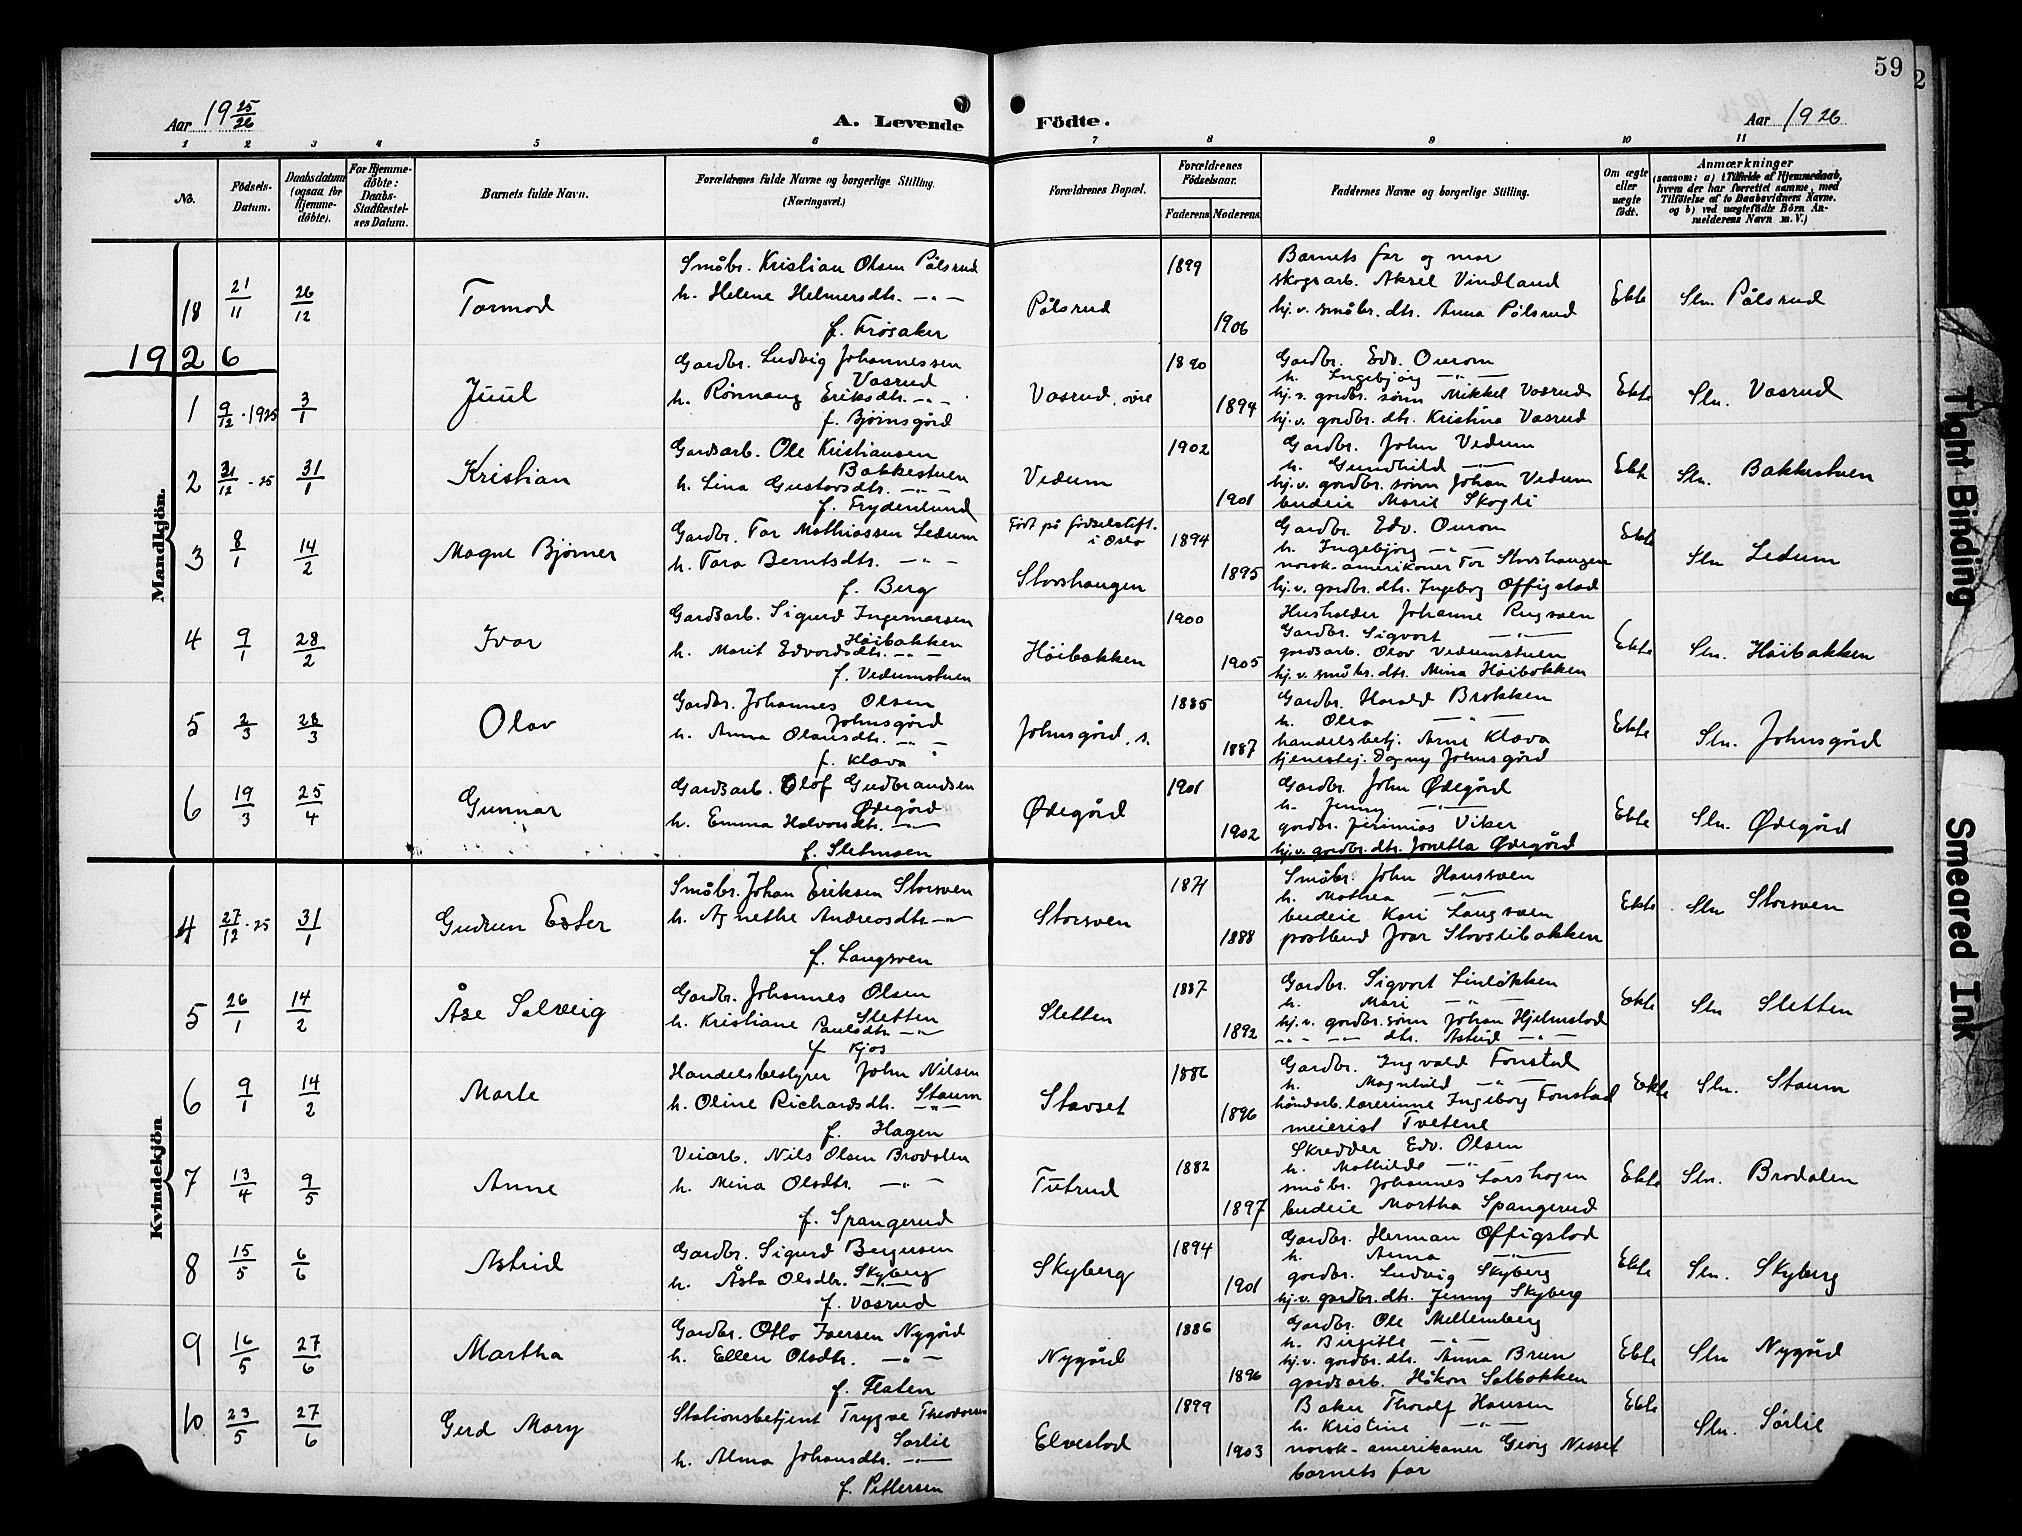 59
2
Aar 19 25/26
A. Levende
Födte.
Aar 1926
1 2 3 4 5 6 7 8 9 10 11
No.
Födsels-Datum.
Daabsdatum (ogsaa for Hjemme-döbte).
For Hjemme-döbte: Daabs-Stadfæstel-ses Datum.
Barnets fulde Navn.
Forældrenes fulde Navne og borgerlige Stilling. (Næringsvei.)
Forældrenes Bopæl.
Forældrenes Födselsaar.
Faderens.
Moderens.
Faddernes Navne og borgerlige Stilling.
Om ægte eller uægte født.
Anmærkninger
(saasom: a) i Tilfælde af Hjemmedaab, hvem der har forrettet samme, med Tilföielse af to Daabsvidners Navne. og b) ved uægtefödte Börn An-melderens Navn m. V.)
Mandkjön.
18 21/11 26/12 Tormod
Småbr. Kristian Olsen Pålsrud
h. Helene Helmersdtr. - " -
f. Frøsaker
Pålsrud
1899
1906
Barnets far og mor
skogsarb. Aksel Vindland
hj.v. småbr. dtr. Anna Pålsrud
Ekte
Sln. Pålsrud
1926
1 9/12 - 1925 3/1 Juul
Gardbr. Ludvig Johannessen
Vasrud
h. Rønnaug Eriksdtr. - " -
f. Bjørnsgård
Vasrud, øvre
1890
1894
Gardbr. Edv. Ourom
h. Ingebjörg - " -
hj.v. gardbr. sönn Mikkel Vasrud
hj.v. gardbr. dtr. Kristina Vasrud
Ekte
Sln. Vasrud
2 31/12 - 25 31/1 Kristian
Gardsarb. Ole Kristiansen
Bakkestuen
h. Lina Gustavsdtr. - " -
f. Frydenlund
Vedum
1902
1901
Gardbr. John Vedum
h. Gunhild - " -
hj.v. gardbr. sönn Johan Vedum
budeie Marit Skogli
Ekte
Sln. Bakkestuen
3 8/1 14/2 Magne Bjørner
Gardbr. Tor Mathiassen Ledum
h. Tora Berntsdtr. - " -
f. Berg
Født på fødselsstift.
i Oslo
Storshaugen
1894
1895
Gardbr. Edv. Ourom
h. Ingebjörg - " -
norsk-amerikaner Tor Storshaugen
hj.v. gardbr. dtr. Ingeborg Offigstad
Ekte
Sln Ledum
4 9/1 28/2 Ivar
Gardsarb. Sigurd Ingemarsen
Höibakken
h. Marit Edvardsdtr. - " -
f. Vedumstuen
Höibakken
1900
1905
Husholder Johanne Rugsveen
Gardbr. Sigvart - " -
gardsarb. Olav Vedumstuen
hj.v. småbr. dtr. Mina Höibakken
Ekte
Sln. Höibakken
5 2/3 28/3 Olav
Gardbr. Johannes Olsen
Johnsgård
h. Anna Olausdtr. - " -
f. Klæva
Johnsgård, s.
1885
1887
Gardbr. Harald Brokken
h. Olea - " -
handelsbetj. Arne Klæva
tjenestej. Dagny Johnsgård
Ekte
Sln. Johnsgård
6 19/3 25/4 Gunnar
Gardsarb. Olof Gudbrandsen
Ødegård
h. Emma Halvorsdtr. - " -
f. Sletmoen
Ødegård
1901
1902
Gardbr. John Ødegård
h. Jenny - " -
gardbr. Jerimias Viker
hj.v. gardbr. dtr. Jonetta Ødegård
Ekte
Sln. Ødegård
Kvindekjön
4 27/12 - 25 31/1 Gudrun Ester
Småbr. Johan Eriksen Storsven
h. Agnethe Andreasdtr. - " -
f. Langsven
Storsven
1871
1888
Småbr. John Hansveen
h. Mathea - " -
budeie Kari Langsveen
postbud Ivar Stovslibakken
Ekte
Sln Storsven
5 26/1 14/2 Åse Solveig
Gardbr. Johannes Olsen
Sletten
h. Kristiane Paulsdtr. - " -
f. Kjos
Sletten
1887
1892
Gardbr. Sigvart Linløkken
h. Mari - " -
hj.v. gardbr. sönn Johan Hjelmstad
- " - - " - dtr. Astrid - " -
Ekte
Sln Sletten
6 9/1 14/2 Marte
Handelsbestyrer John Nilsen
Staum
h. Oline Richardsdtr. - " -
f. Hagen
Stavset
1886
1896
Gardbr. Ingvald Fonstad
h. Magnhild - " -
håndarb.lærerinne Ingeborg Fonstad
meierist Tvetene
Ekte
Sln. Staum
7 13/4 9/5 Anne
Veiarb. Nils Olsen Brodalen
h. Mina Olsdtr. - " -
f. Spangerud
Tutrud
1882
1897
Skredder Edv. Olsen
h. Mathilde - " -
småbr. Johannes Larshagen
budeie Martha Spangerud
Ekte
Sln. Brodalen
8 15/5 6/6 Astrid
Gardbr. Sigurd Bergersen
Skyberg
h. Åsta Olsdtr. - " -
f. Vasrud
Skyberg
1894
1901
Gardbr. Herman Offigstad
h. Anna - " -
gardbr. Ludvig Skyberg
hj.v. gardbr. dtr. Jenny Skyberg
Ekte
Sln. Skyberg
9 16/5 27/6 Martha
Gardbr. Otto Iversen Nygård
h. Ellen Olsdtr. - " -
f. Flaten
Nygård
1886
1896
Gardbr. Ole Mellemberg
h. Birgitte - " -
hj.v. gardbr. dtr. Anna Brun
gardsarb. Håkon Solbakken
Ekte
Sln Nygård
10 23/5 27/6 Gerd Mary
Stationsbetjent Trygve Theodorsen
Sørlie
h. Alma Johansdtr. - " -
f. Pettersen
Elvestad
1899
1903
Baker Thoralf Hansen
h. Kristine - " -
norsk-amerikaner Georg Nesset
barnets far
Ekte
Sln. Sørlie
Tight Binding
Smeared Ink